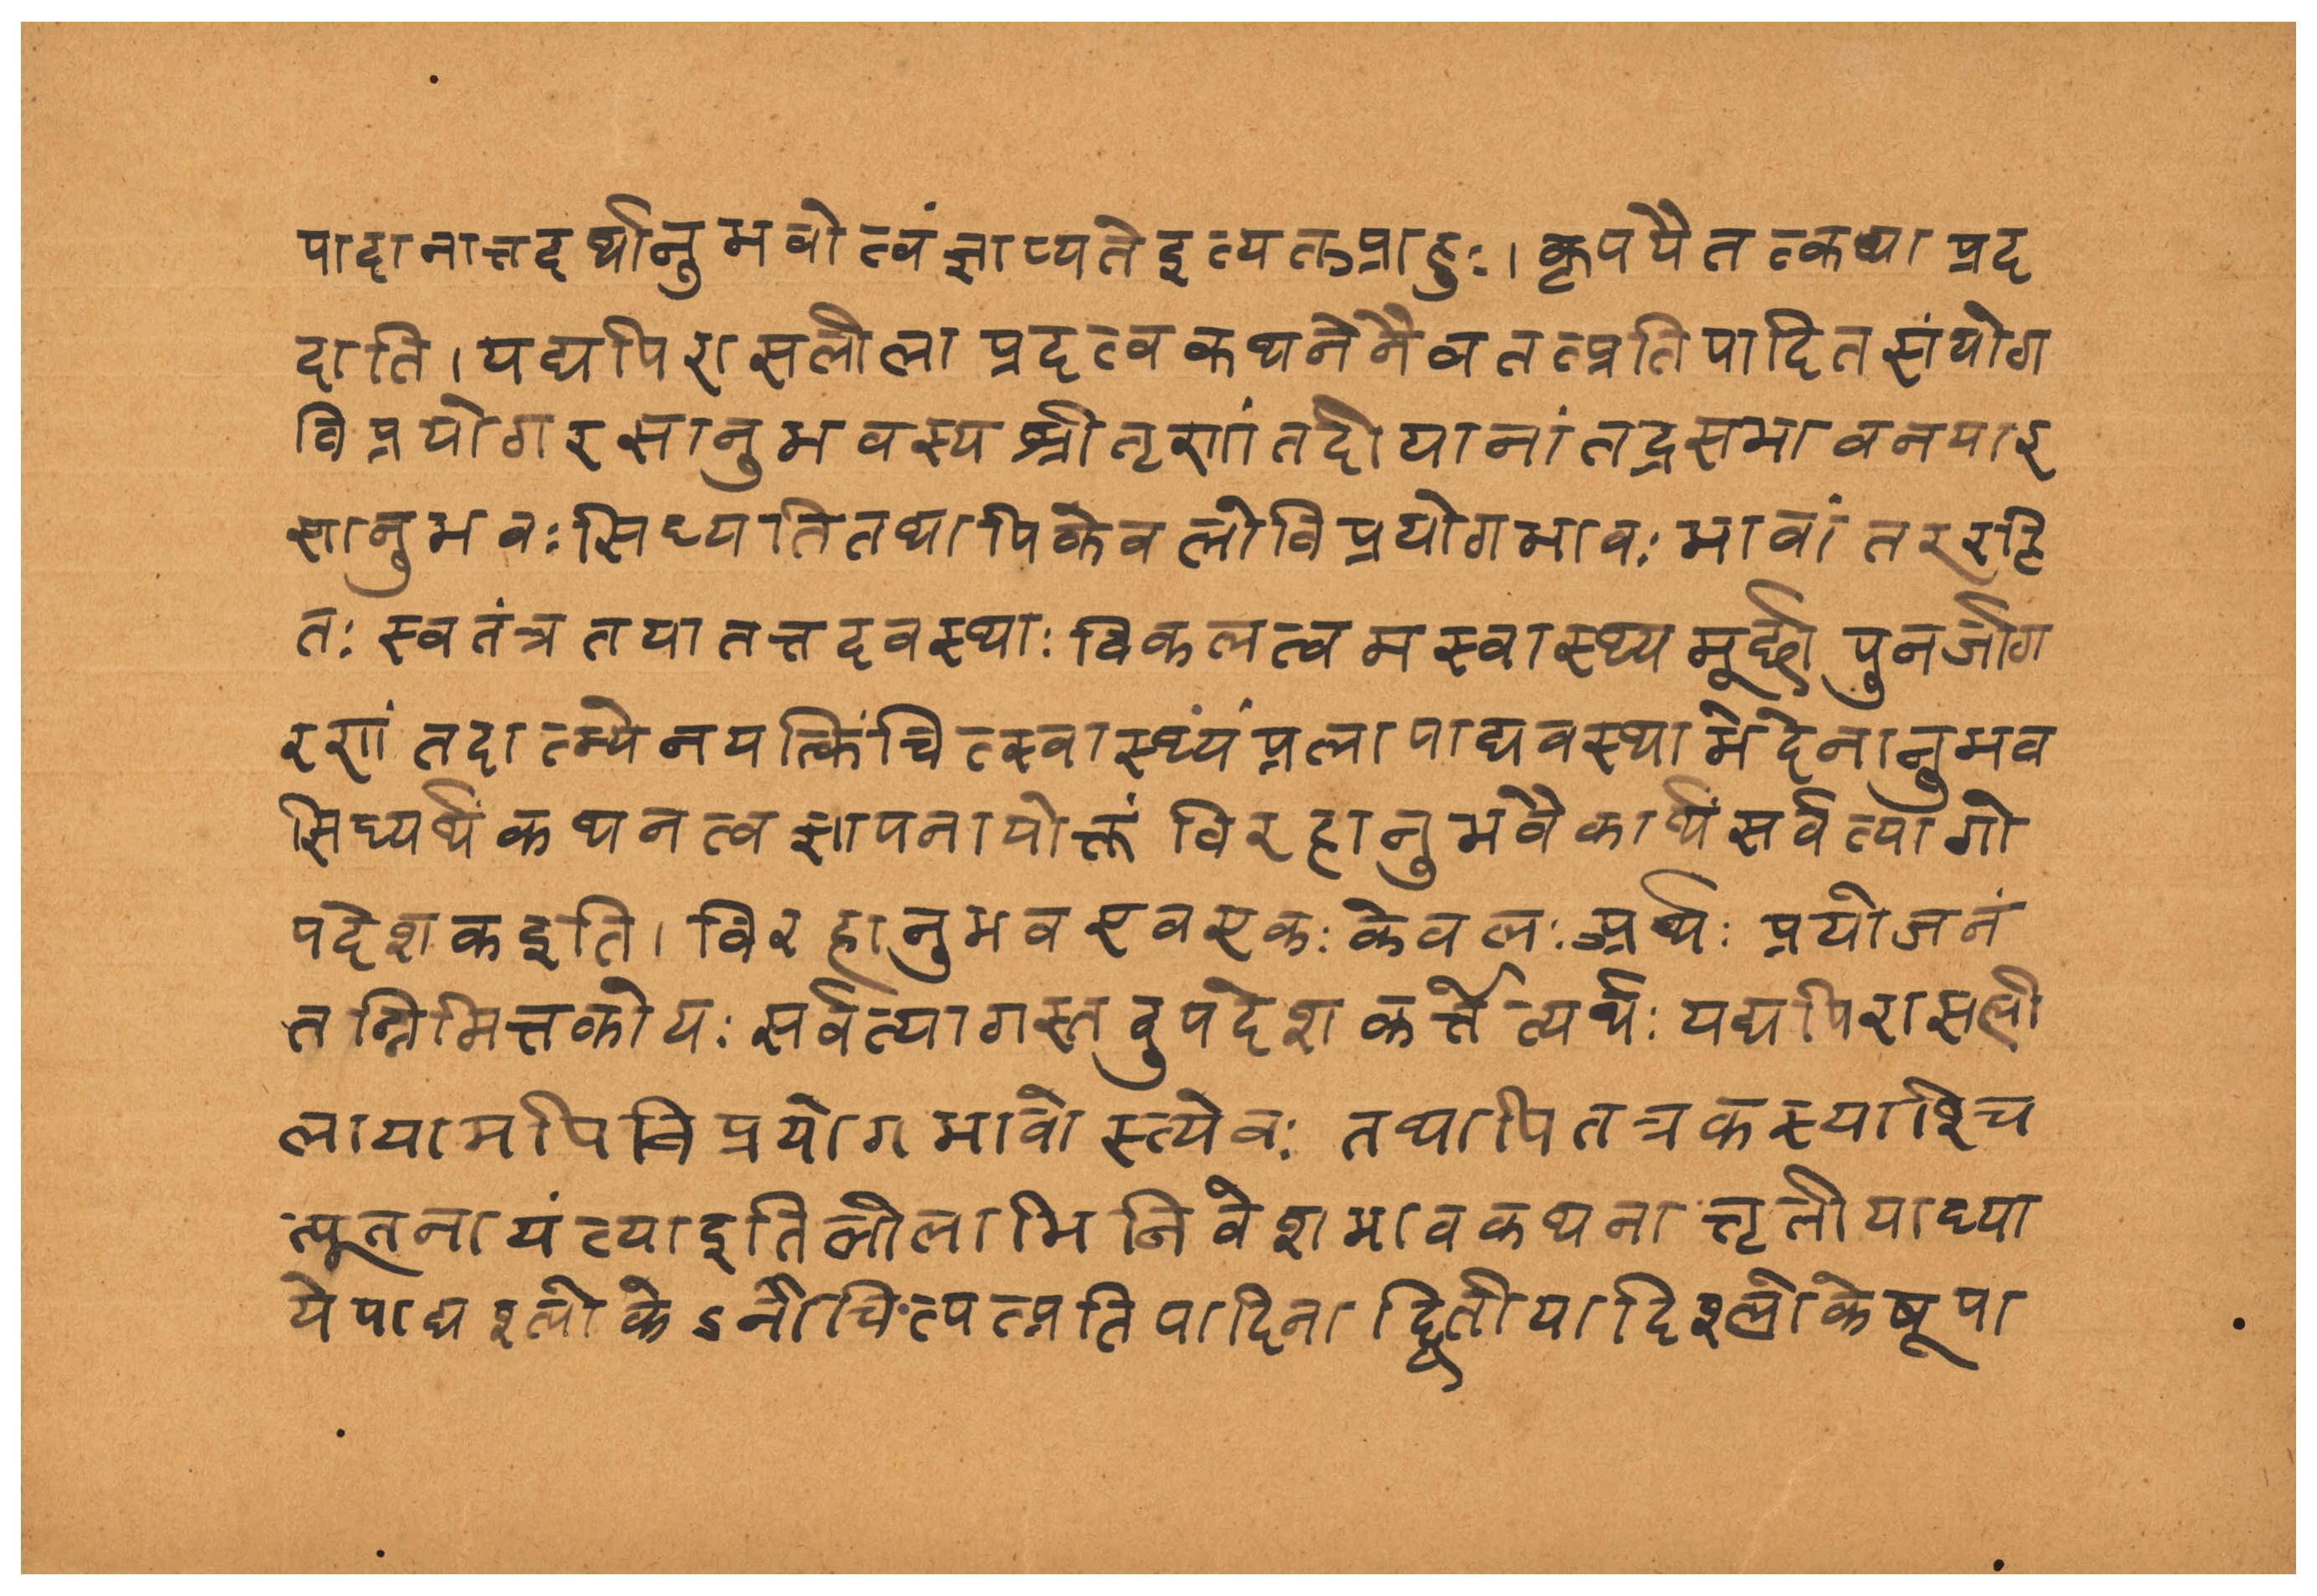 पादानात्तदर्थानुभवोत्वंज्ञाप्यतेइत्यतप्राहुः।कृपयैतत्कथा प्रद
दाति।यद्यपिरासलीला प्रदत्वकथनेनैवतत्प्रतिपादितसंयोग
विप्रयोगरसानुभवस्य श्रोतृणांतदीयानांतद्रसभावनयार
सानुभवःसिध्यतितथापिकेवलोविप्रयोगभावःभावांतररहि
तः स्वतंत्रतयातत्तदवस्थाःविकलत्वमस्वास्थ्यमूर्छा पुनर्जाग
रणं तदात्म्येनयत्किंचित्स्वास्थ्यंप्रलापाद्यवस्थाभेदेनानुभव
सिध्यर्थंकथनत्वज्ञापनायोक्तं विरहानुभवैकार्थंसर्वत्यागो
पदेशकइति। विरहानुभवएवएकःकेवलःअर्थः प्रयोजनं
तन्निमित्तकोयः सर्वत्यागस्तदुपदेशकर्त्तेत्यर्थः यद्यपिरासली
लायामपिविप्रयोगभावोस्त्येवः तथापितत्रकस्याश्चि
त्पूतनायंत्याइतिलीलाभिनिवेशभावकथनात्तृतीयाध्या
येषाद्यश्लोकेऽनौचित्यत्प्रतिपादिनाद्वितीयादिश्लोकेषूपा